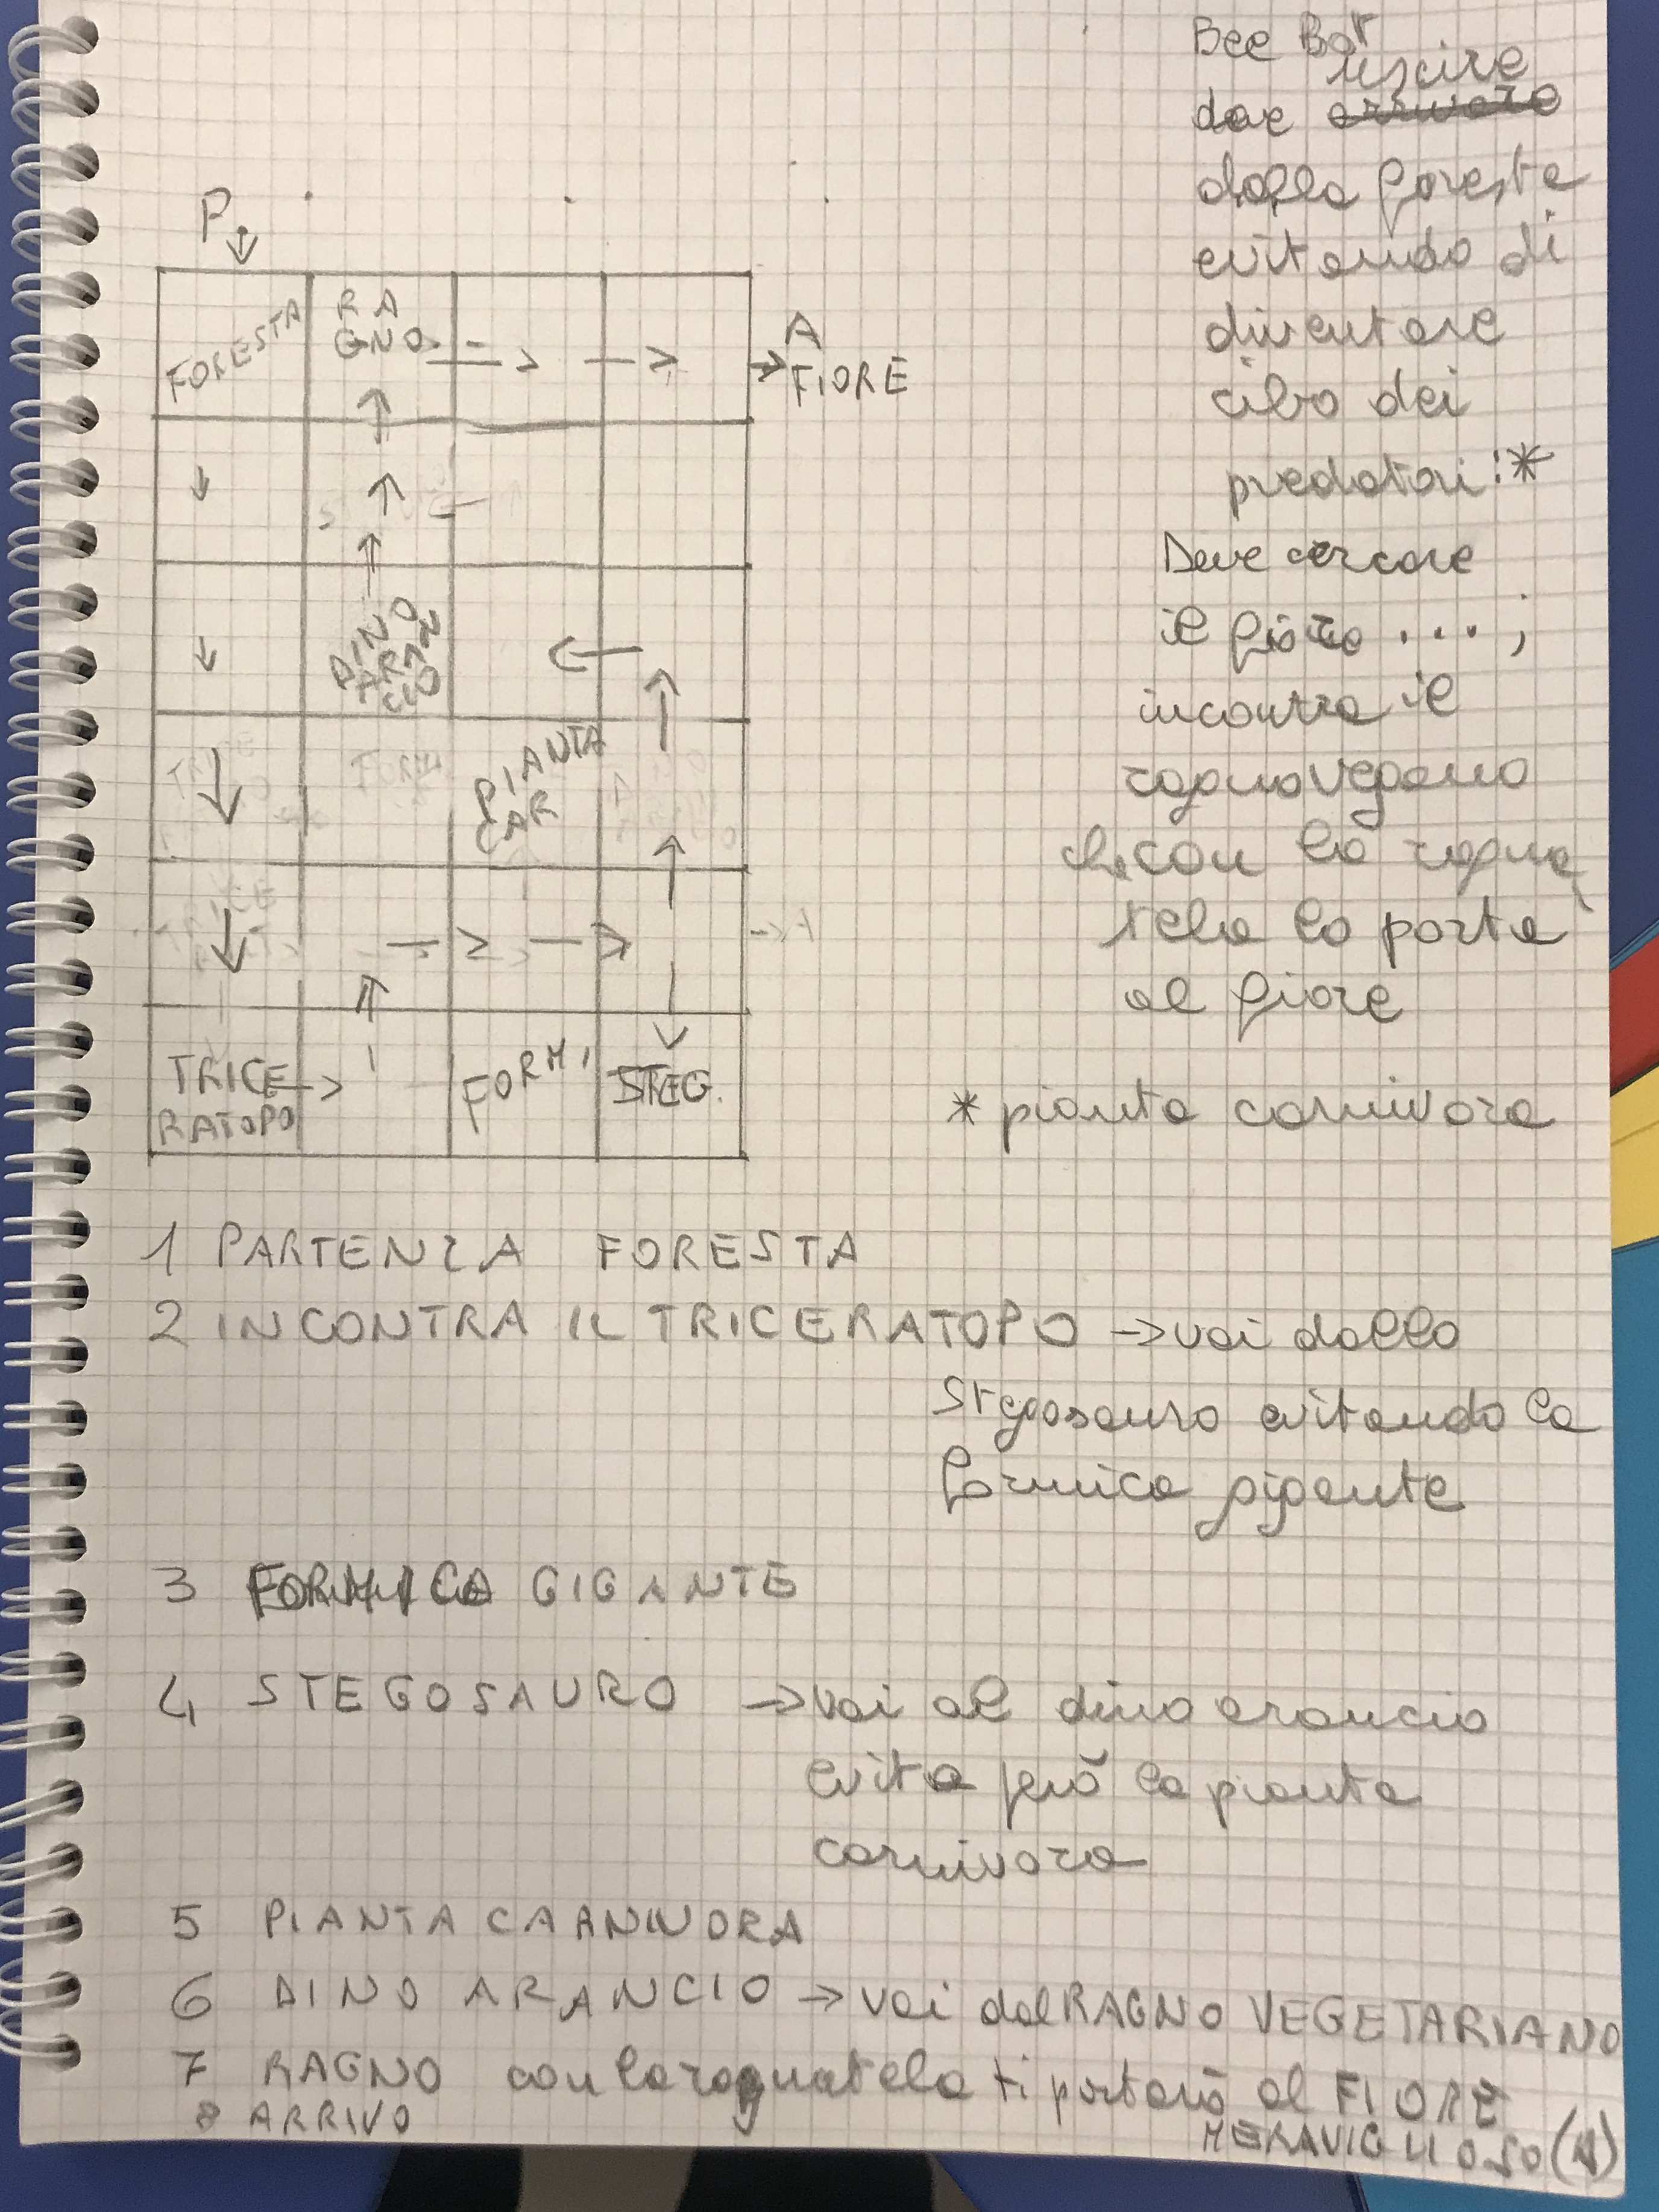 Bee Bot
uscire
dae arrivare
dalla foresta
evitando di
diventare
cibo dei
predatori:*
Deve cercare
il fiore ...;
incontra il
ragno vegano
che con la ragna
tela lo porta
al fiore
* pianta carnivora
P
FORESTA
RA
GNO
A
FIORE
DINO
ARAN
CIO
PIANTA
CAR
TRICE
RATOPO
FORMI
STEG.
1 PARTENZA FORESTA
2 INCONTRA IL TRICERATOPO → vai dallo
Stegosauro evitando la
formica gigante
3 FORMICA GIGANTE
4 STEGOSAURO → vai al dino arancio
evita però la pianta
carnivora
5 PIANTA CARNIVORA
6 DINO ARANCIO → vai dal RAGNO VEGETARIANO
7 RAGNO con la ragnatela ti porterà al FIORE
MERAVIGLIOSO (A)
8 ARRIVO